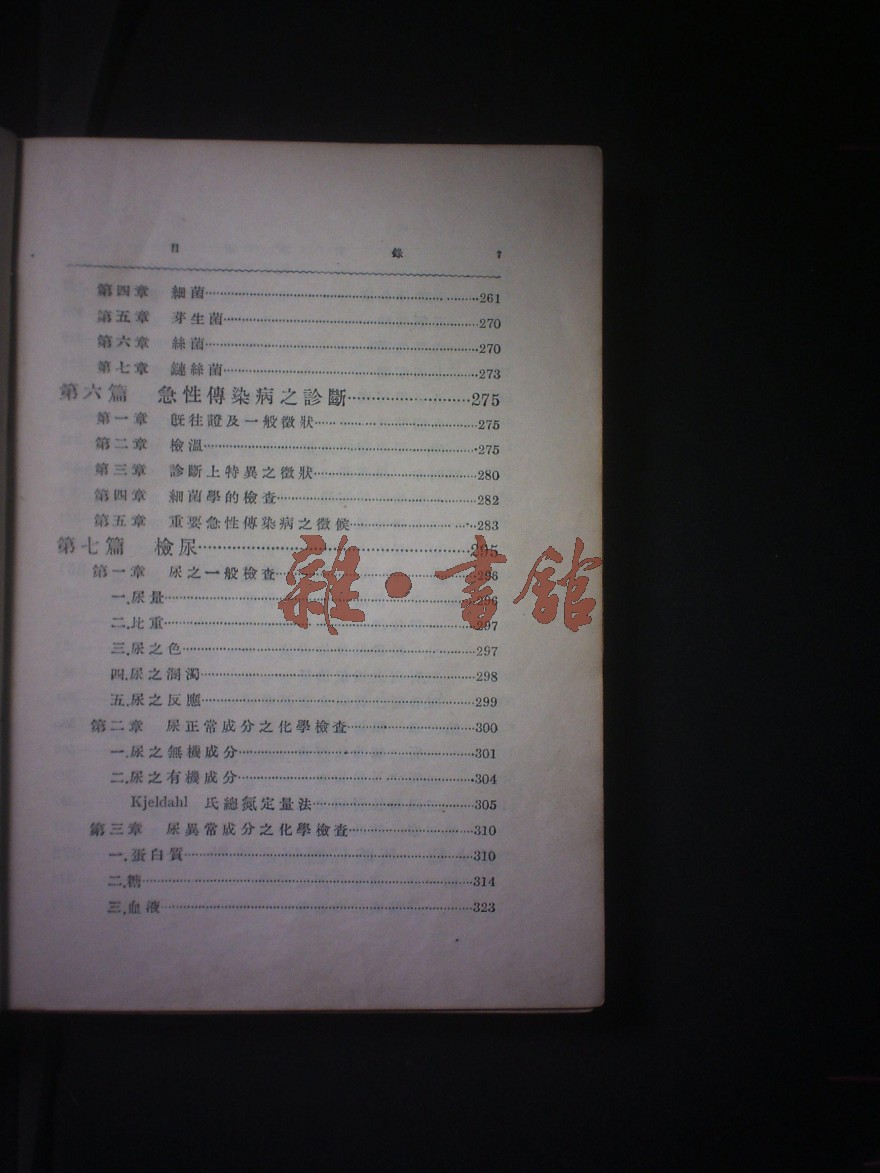 目 錄 7
第四章 細菌 261
第五章 芽生菌 270
第六章 絲菌 270
第七章 鏈絲菌 273
第六篇 急性傳染病之診斷 275
第一章 旣往證及一般徵狀 275
第二章 檢溫 275
第三章 診斷上特異之徵狀 280
第四章 細菌學的檢查 282
第五章 重要急性傳染病之徵候 283
第七篇 檢尿 295
第一章 尿之一般檢查 296
一.尿量 296
二.比重 297
三.尿之色 297
四.尿之溷濁 298
五.尿之反應 299
第二章 尿正常成分之化學檢查 300
一.尿之無機成分 301
二.尿之有機成分 304
Kjeldahl 氏總氮定量法 305
第三章 尿異常成分之化學檢查 310
一.蛋白質 310
二.糖 314
三.血液 323
雜·書館